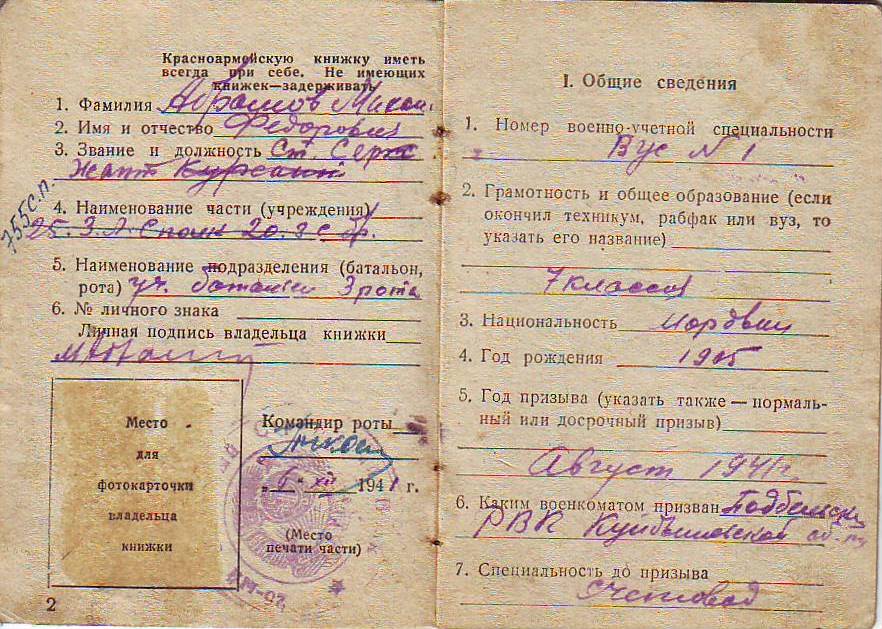 Красноармейскую книжку иметь
всегда при себе. Не имеющих
книжек—задерживать
1. Фамилия Абрамов Михаил
2. Имя и отчество Федорович
3. Звание и должность Ст. Серж
жант Курсант
755 с.п.
4. Наименование части (учреждения)
25. З. Л. С полк 20. З С. бр.
5. Наименование подразделения (батальон,
рота) уч. батальон 3 рота
6. № личного знака
Личная подпись владельца книжки
Место
для
фотокарточки
владельца
книжки
Командир роты
„6" XII 1941 г.
(Место
печати части)
2
I. Общие сведения
1. Номер военно-учетной специальности
Вус № 1
2. Грамотность и общее образование (если
окончил техникум, рабфак или вуз, то
указать его название)
7 классов
3. Национальность мордвин
4. Год рождения 1905
5. Год призыва (указать также — нормаль-
ный или досрочный призыв)
Август 1941 г.
6. Каким военкоматом призван Подбельский
РВК Куйбышевской
7. Специальность до призыва
Счетовод